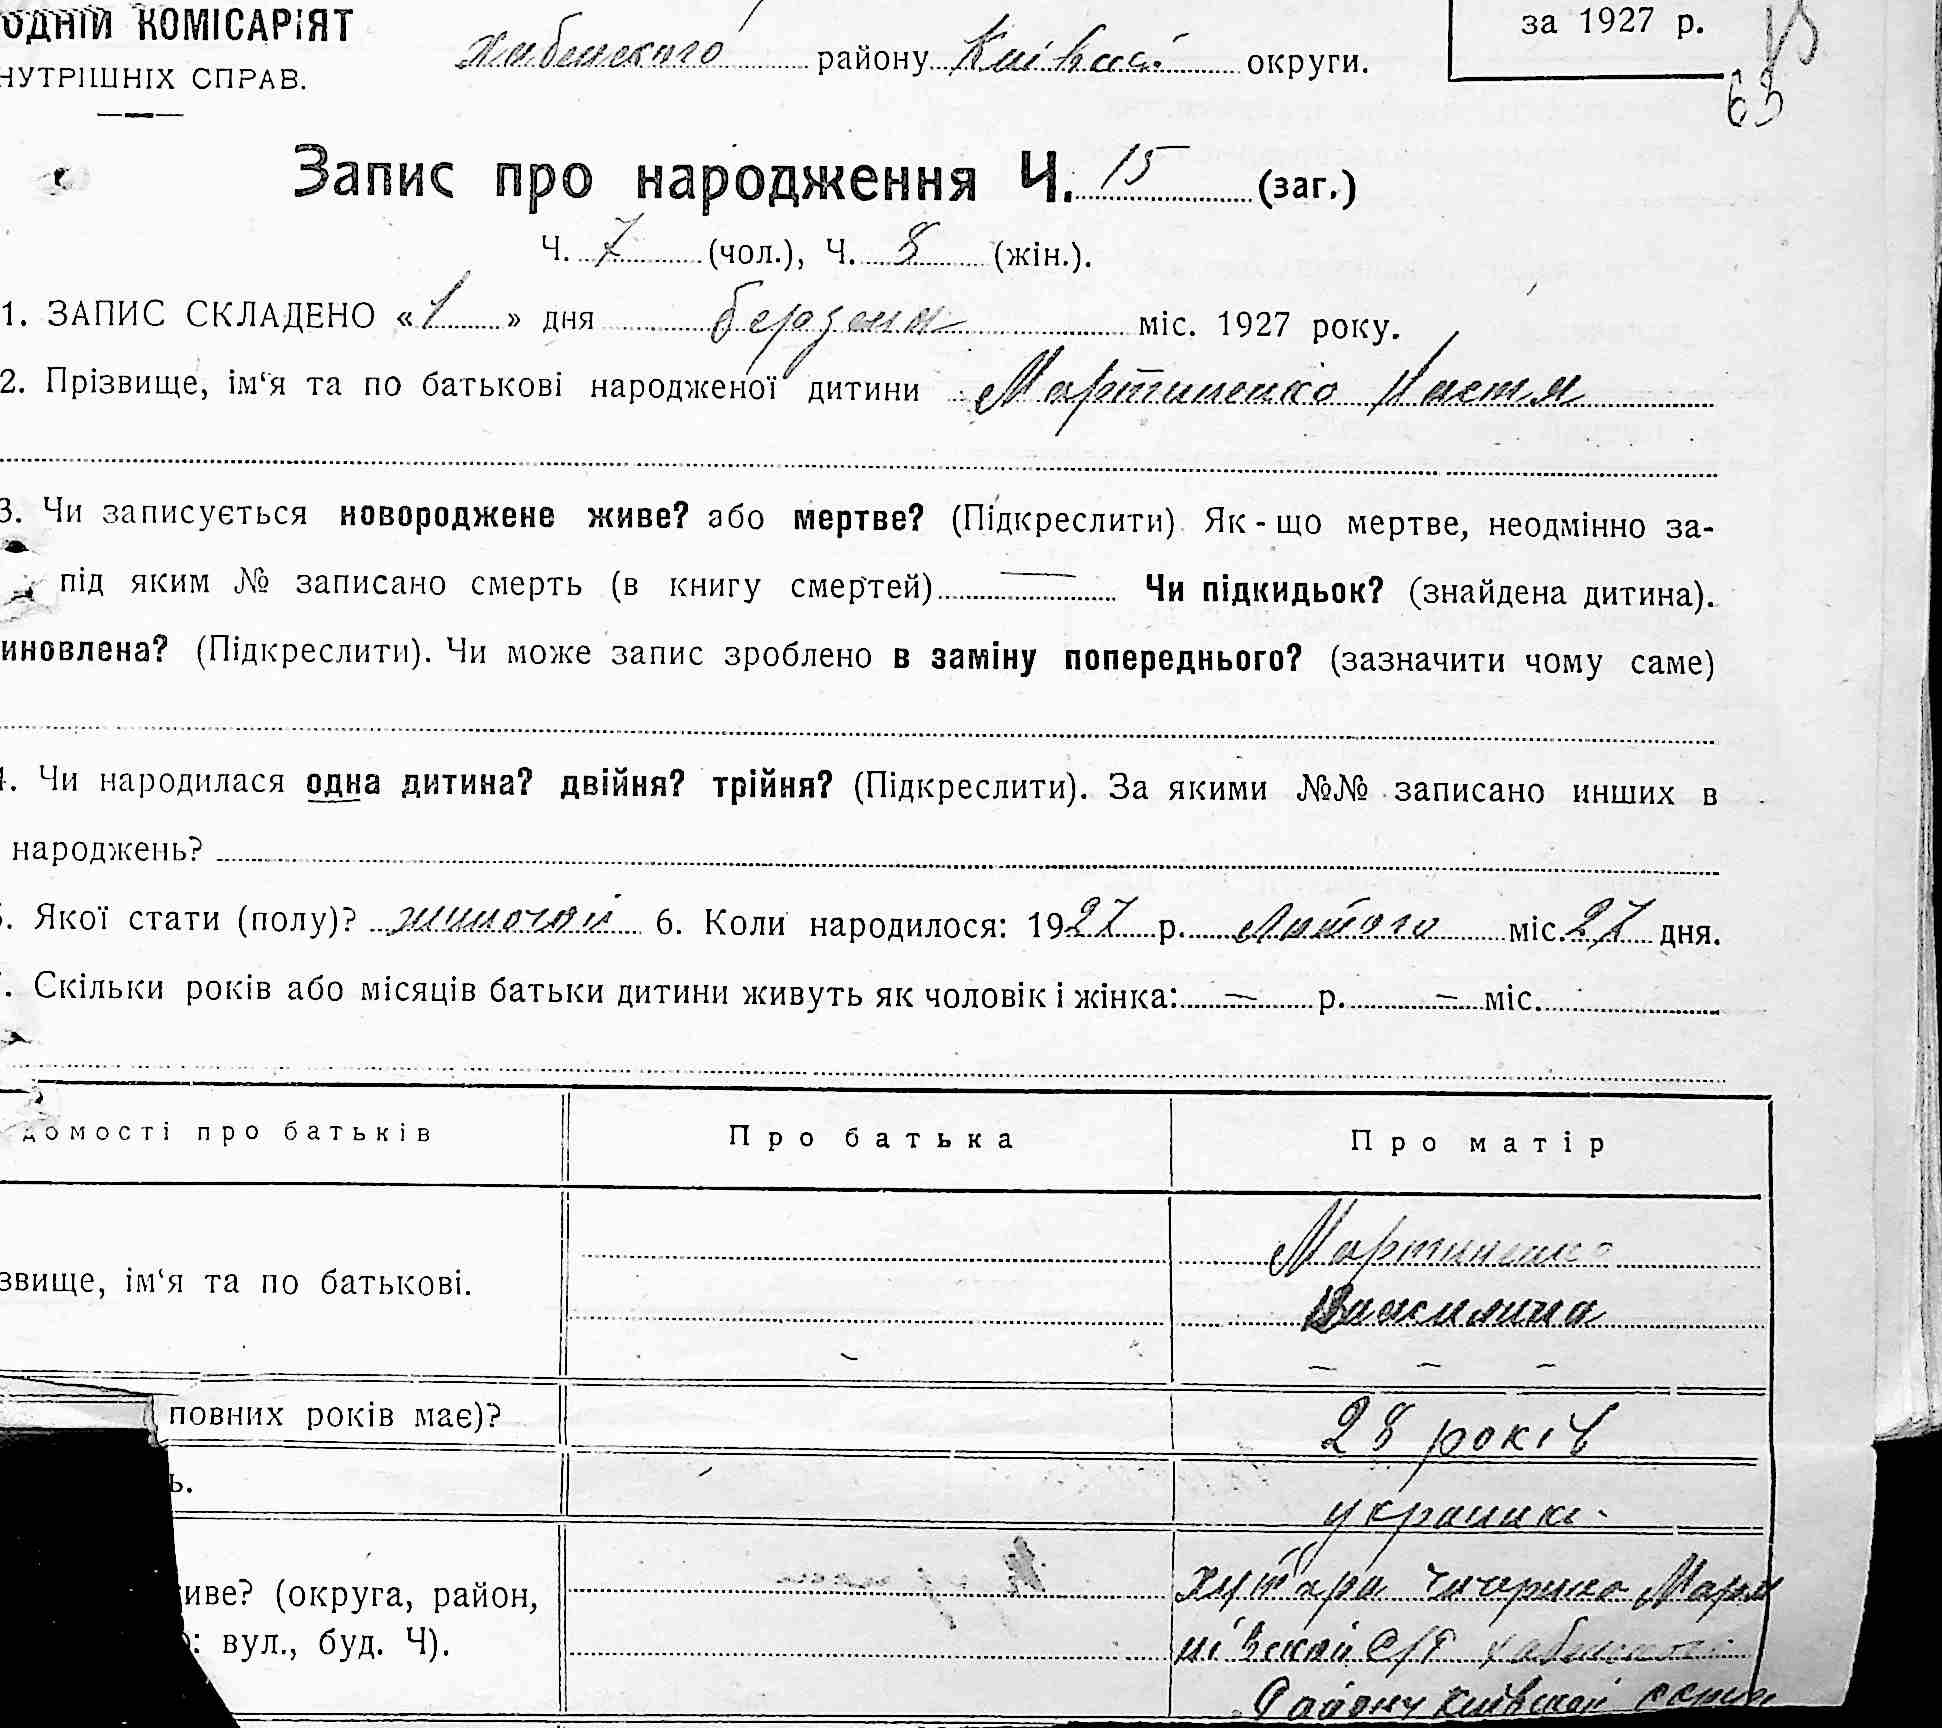 ОДНІЙ КОМІСАРІЯТ
НУТРІШНІХ СПРАВ.
Хабенского району Київської округи.
за 1927 р.
63
Запис про народження Ч. 15 (заг.)
Ч. 7 (чол.), Ч. 8 (жін.).
1. ЗАПИС СКЛАДЕНО «1» дня березня міс. 1927 року.
2. Прізвище, ім‘я та по батькові народженої дитини Мартиненко Настя
3. Чи записується новороджене живе? або мертве? (Підкреслити) Як-що мертве, неодмінно за-
під яким № записано смерть (в книгу смертей) — Чи підкидьок? (знайдена дитина).
иновлена? (Підкреслити). Чи може запис зроблено в заміну попереднього? (зазначити чому саме)
4. Чи народилася одна дитина? двійня? трійня? (Підкреслити). За якими №№ записано инших в
народжень?
5. Якої стати (полу)? жиночой 6. Коли народилося: 1927 р. Лютого міс. 27 дня.
7. Скільки років або місяців батьки дитини живуть як чоловік і жінка: — р. — міс.
домості про батьків Про батька Про матір
Мартиненко
звище, ім‘я та по батькові.
- - - -
повних років має)? 28 років
ь.
украинка
иве? (округа, район, хутора
: вул., буд. Ч). С/Р
Району Київской